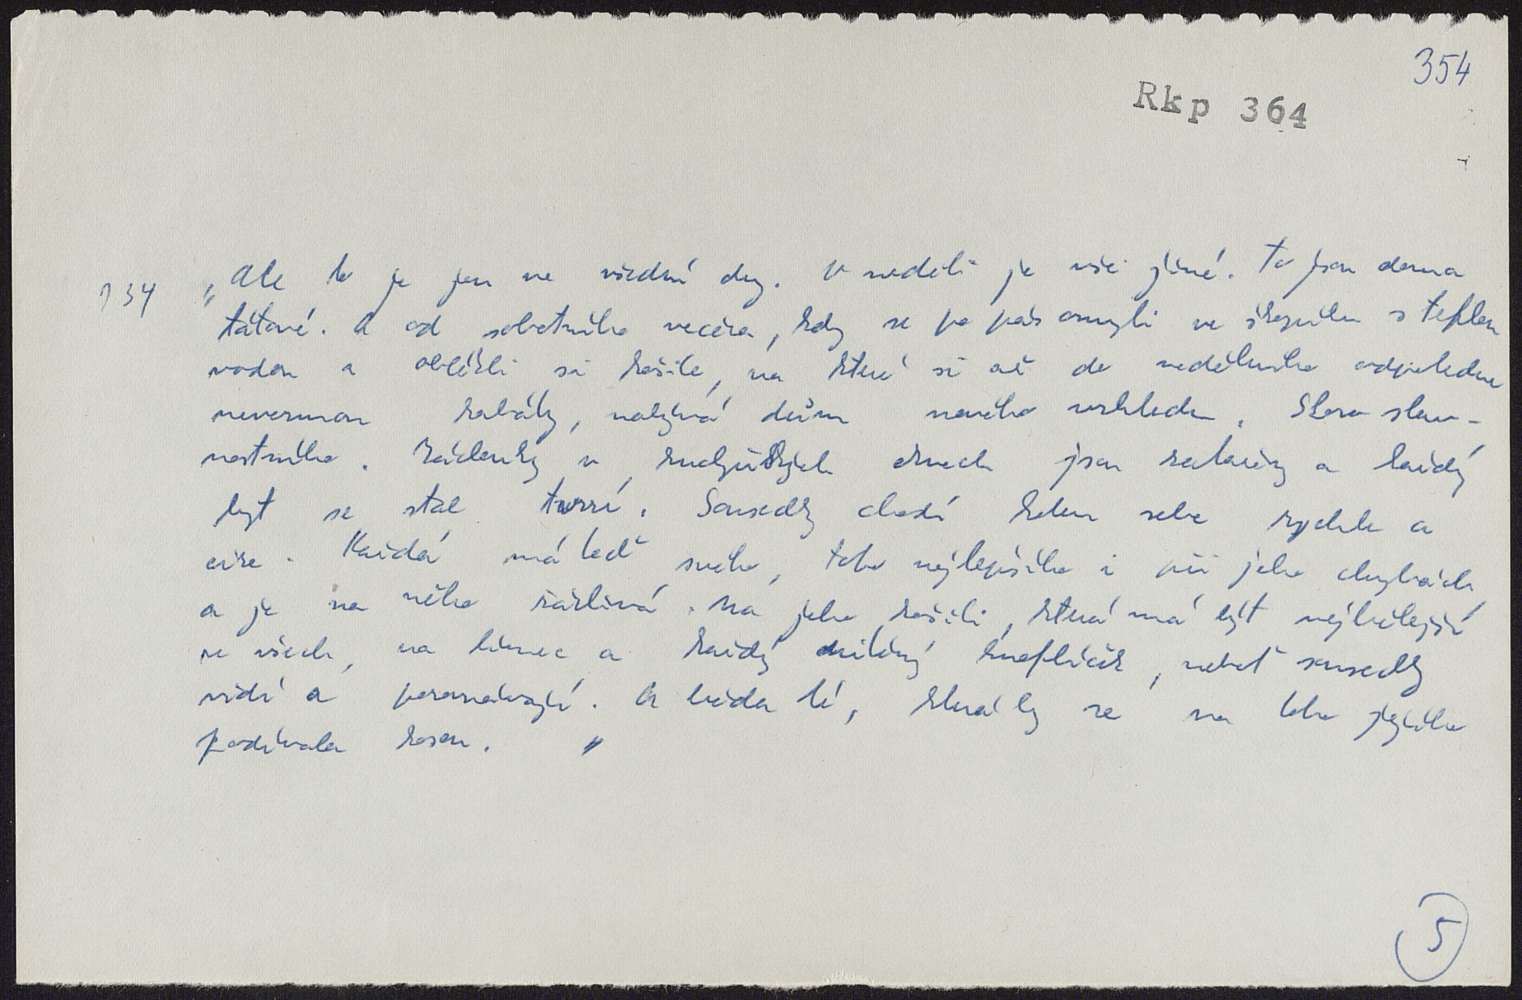 354
Rkp 364
134 „Ale to je jen ve všední dny. V neděli je vše jiné. To jsou doma
tátové. A od sobotního večera, kdy se po pás omyli ve škopíku s teplou
vodou a oblékli si košile, na které si až do nedělního odpoledne
nevezmou kabáty, nabývá dům nového vzhledu. Skoro slav-
nostního. Záclonky v kuchyňských dveřích jsou zataženy a každý
byt se stal tvrzí. Sousedky chodí kolem sebe rychle a
cize. Každá má teď svého, toho nejlepšího i při jeho chybách
a je na něho žárlivá. Na jeho košili, která má být nejbělejší
ze všech, na límec a každý knoflíček, neboť sousedky
vidí a porovnávají. A běda té, která by se na toho jejího
podívala kosou. "
5